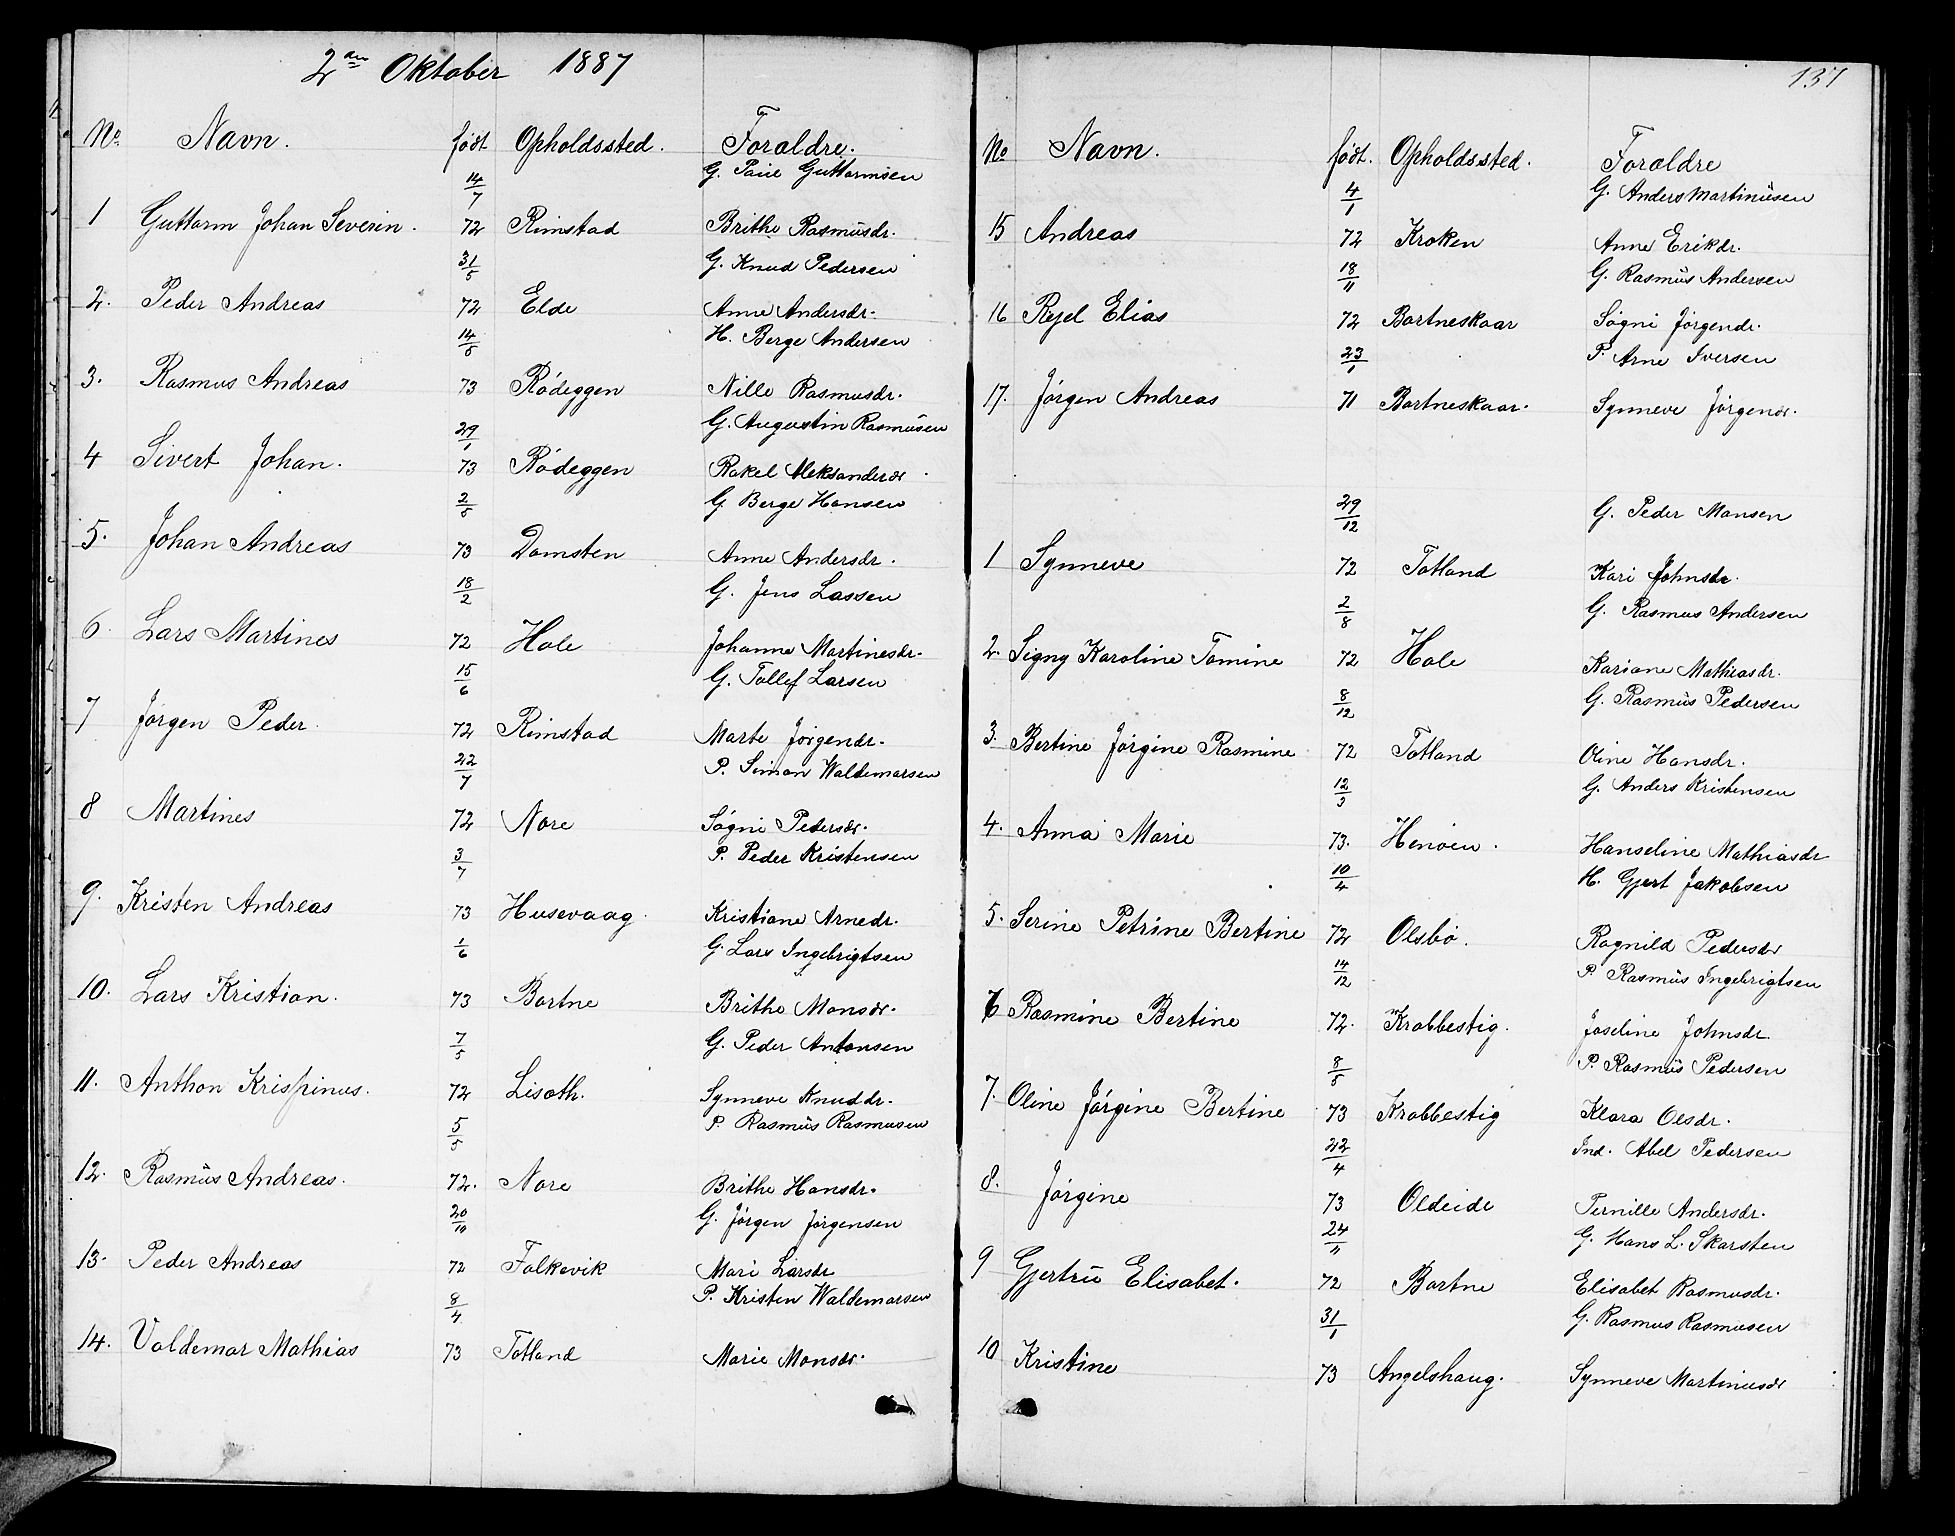 2den Oktober 1887
No. Navn. født Opholdssted. Forældre.
14/7 G. Paul Guttormsen
1 Guttorm Johan Severin. 72 Rimstad Brithe Rasmusdr.
31/5 G. Knud Pedersen
2. Peder Andreas 72 Elde Anne Andersdr.
14/5 H. Berge Andersen
3. Rasmus Andreas 73 Rødeggen Nille Rasmusdr.
29/1 G. Augustin Rasmusen
4 Sivert Johan. 73 Rødeggen Rakel Aleksandersdr
2/5 G. Berge Hansen
5. Johan Andreas 73 Domsten Anne Andersdr.
18/2 G. Jens Lassen
6. Lars Martines 72 Hole Johanne Martinesdr.
15/6 G. Tollef Larsen
7 Jørgen Peder. 72 Rimstad Marte Jørgendr.
22/7 P. Simon Waldemarsen
8 Martines 72 Nore Søgni Pedersdr.
3/7 P. Peder Kristensen
9. Kristen Andreas 73 Husevaag. Kristiane Arnedr.
1/6 G. Lars Ingebrigtsen
10. Lars Kristian. 73 Bortne Brithe Monsdr.
7/5 G. Peder Antonsen
11. Anthon Krispinus. 72 Lisæth. Synneve Knuddr.
5/5 P. Rasmus Rasmusen
12. Rasmus Andreas. 72. Nore Brithe Hansdr.
20/10 G. Jørgen Jørgensen
13. Peder Andreas 72 Falkevik Mari Larsdr
8/4 P. Kristen Waldemarsen
14. Valdemar Mathias 73 Totland Marie Monsdr.
137
No Navn. født. Opholdssted. Forældre
4/1 G. Anders Martinusen
15 Andreas 72 Kroken Anne Erikdr.
18/11 G. Rasmus Andersen
16 Rejel Elias 72 Bortneskaar Søgni Jørgendr.
23/1 P. Arne Iversen
17. Jørgen Andreas 71 Bortneskaar. Synneve Jørgendr.
29/12 G. Peder Monsen
1 Synneve 72 Totland Kari Johnsdr.
2/8 G. Rasmus Andersen
2. Signy Karoline Tomine 72 Hole Kariane Mathiasdr.
8/12 G. Rasmus Pedersen
3. Bertine Jørgine Rasmine 72 Totland Oline Hansdr.
12/3 G. Anders Kristensen
4. Anna Marie 73. Henøen. Hanseline Mathiasdr
10/4 H. Gjert Jakobsen
5. Serine Petrine Bertine 72 Olsbø. Ragnild Pedersdr
14/12 P. Rasmus Ingebrigtsen
6 Rasmine Bertine 72. Krabbestig. Joseline Johnsdr.
8/5 P. Rasmus Pedersen
7. Oline Jørgine Bertine 73 Krabbestig Klara Olsdr.
22/4 Ind. Abel Pedersen
8. Jørgine 73 Oldeide Pernille Andersdr.
24/11 G. Hans L. Skarsten
9 Gjertru Elisabet. 72 Bortne Elisabet Rasmusdr.
31/1 G. Rasmus Rasmusen
10 Kristine 73 Angelshaug. Synneve Martinusdr